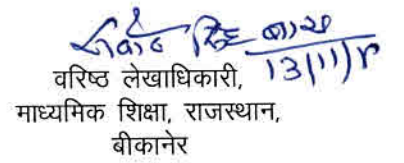 13/11/18
वरिष्ठ लेखाधिकारी,
माध्यमिक शिक्षा, राजस्थान,
बीकानेर